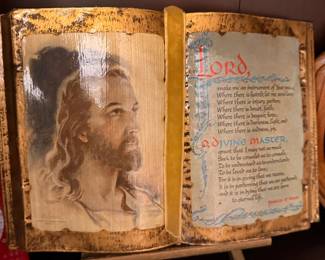 Lord,
make me an instrument of Your peace,
Where there is hatred let me sow love,
Where there is injury, pardon,
Where there is doubt, faith,
Where there is despair, hope,
Where there is darkness, light, and
Where there is sadness, joy.
O DIVINE MASTER,
grant that I may not so much
Seek to be consoled as to console,
To be understood as to understand,
To be loved as to love;
For it is in giving that we receive,
It is in pardoning that we are pardoned,
and it is in dying that we are born
to eternal life.